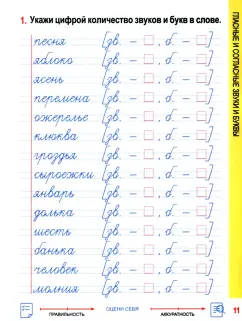 1. Укажи цифрой количество звуков и букв в слове.
песня [зв. – □, б. – □]
яблоко [зв. – □, б. – □]
ясень [зв. – □, б. – □]
перемена [зв. – □, б. – □]
ожерелье [зв. – □, б. – □]
клюква [зв. – □, б. – □]
гроздья [зв. – □, б. – □]
сыроежки [зв. – □, б. – □]
январь [зв. – □, б. – □]
долька [зв. – □, б. – □]
шесть [зв. – □, б. – □]
банька [зв. – □, б. – □]
человек [зв. – □, б. – □]
молния [зв. – □, б. – □]
ГЛАСНЫЕ И СОГЛАСНЫЕ ЗВУКИ И БУКВЫ
11
ОЦЕНИ СЕБЯ
ПРАВИЛЬНОСТЬ АККУРАТНОСТЬ